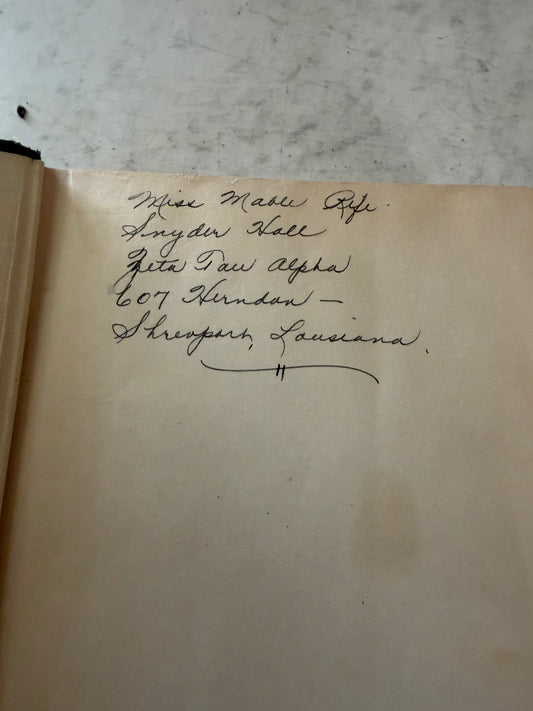 Miss Mable Rife.
Snyder Hall
Zeta Tau Alpha
607 Herndon —
Shrevport, Lousiana.